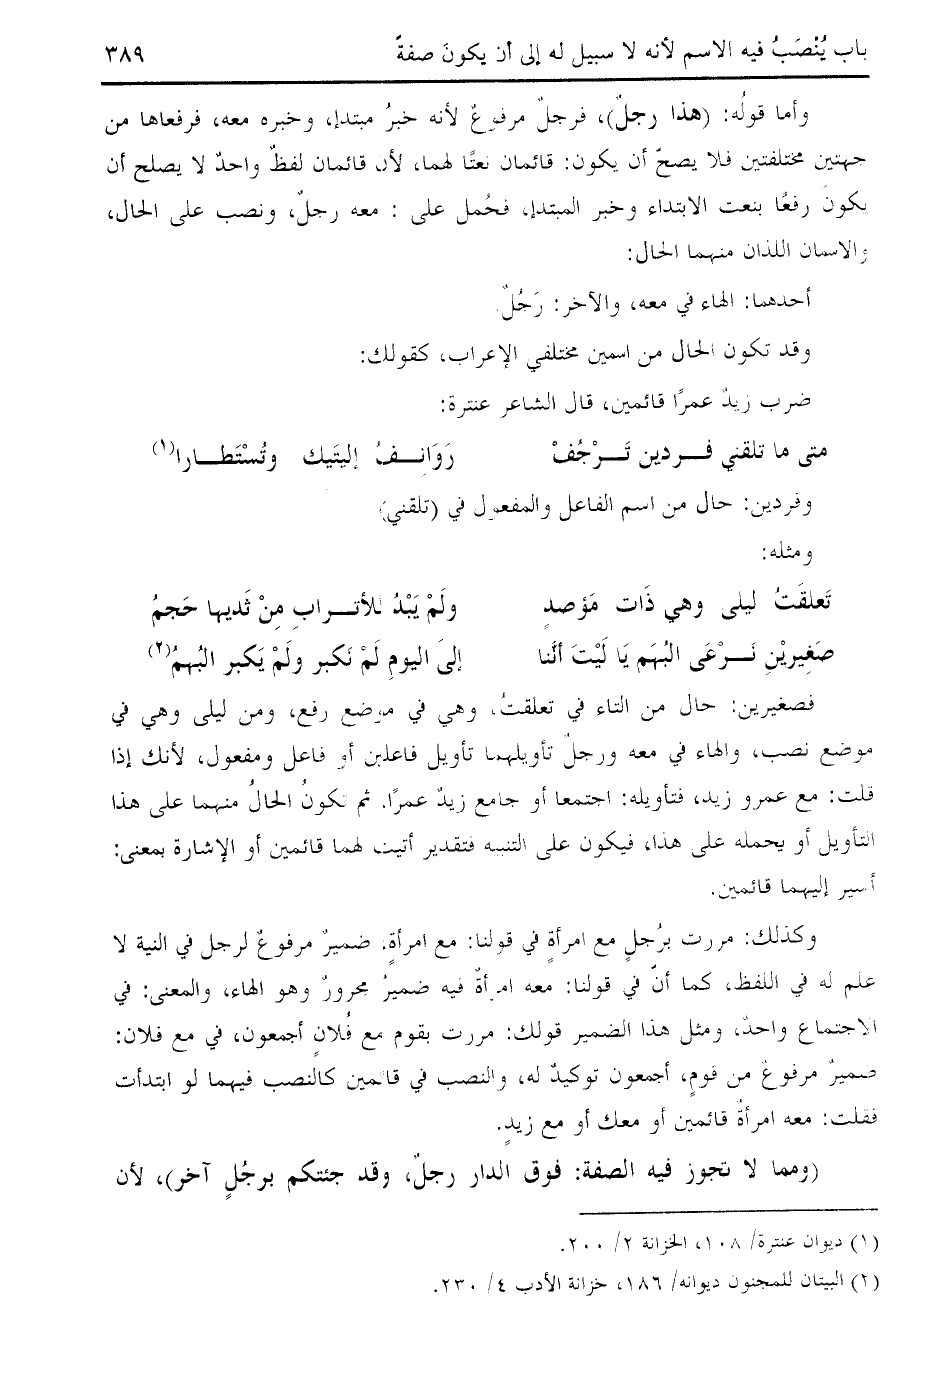 باب يُنْصَبُ فيه الاسم لأنه لا سبيل له إلى أن يكونَ صفةً ٣٨٩
وأما قولُه: (هذا رجلٌ)، فرجلٌ مرفوعٌ لأنه خبرُ مبتدإ، وخبره معه، فرفعاها من
جهتين مختلفتين فلا يصحّ أن يكون: قائمان نعتًا لهما، لأن قائمان لفظٌ واحدٌ لا يصلح أن
يكونَ رفعًا بنعت الابتداء وخبر المبتدإ، فحُمل على : معه رجلٌ، ونصب على الحال،
والاسمان اللذان منهما الحال:
أحدهما: الهاء في معه، والآخر: رَجُلٌ.
وقد تكون الحال من اسمين مختلفي الإعراب، كقولك:
ضرب زيدٌ عمرًا قائمين، قال الشاعر عنترة:
متى ما تلقني فــردين تَــرْجُفْ رَوَانــفُ إليتيك وتُسْتَطــارا(١)
وفردين: حال من اسم الفاعل والمفعول في (تلقني)
ومثله:
تَعلقَتُ ليلى وهي ذَات مَؤصدٍ ولَمْ يَبْدُ للأتــرابِ مِنْ ثَديها حَجمُ
صَغِيريْنِ نَــرْعَى البُهَم يَا لَيْتَ أنَّنا إلىَ اليومِ لَمْ نَكبر ولَمْ يَكبر البُهمُ(٢)
فصغيرين: حال من التاء في تعلقتُ، وهي في موضع رفع، ومن ليلى وهي في
موضع نصب، والهاء في معه ورجلٌ تأويلهما تأويل فاعلين أو فاعل ومفعول، لأنك إذا
قلت: مع عمرو زيد، فتأويله: اجتمعا أو جامع زيدٌ عمرًا. ثم تكونُ الحالُ منهما على هذا
التأويل أو يحمله على هذا، فيكون على التنبيه فتقدير أتيت لهما قائمين أو الإشارة بمعنى:
أسير إليهما قائمين.
وكذلك: مررت برُجلٍ مع امرأةٍ في قولنا: مع امرأةٍ. ضميرٌ مرفوعٌ لرجل في النية لا
علم له في اللفظ، كما أنّ في قولنا: معه امرأةٌ فيه ضميرٌ مجرورٌ وهو الهاء، والمعنى: في
الاجتماع واحدٌ، ومثل هذا الضمير قولك: مررت بقوم مع فُلانٍ أجمعون، في مع فلان:
ضميرٌ مرفوعٌ من قومٍ، أجمعون توكيدٌ له، والنصب في قائمين كالنصب فيهما لو ابتدأت
فقلت: معه امرأةٌ قائمين أو معك أو مع زيدٍ.
(ومما لا تجوز فيه الصفة: فوق الدار رجلٌ، وقد جئتكم برجُلٍ آخر)، لأن
(١) ديوان عنترة/ ١٠٨، الخزانة ٢/ ٢٠٠.
(٢) البيتان للمجنون ديوانه/ ١٨٦، خزانة الأدب ٤/ ٢٣٠.